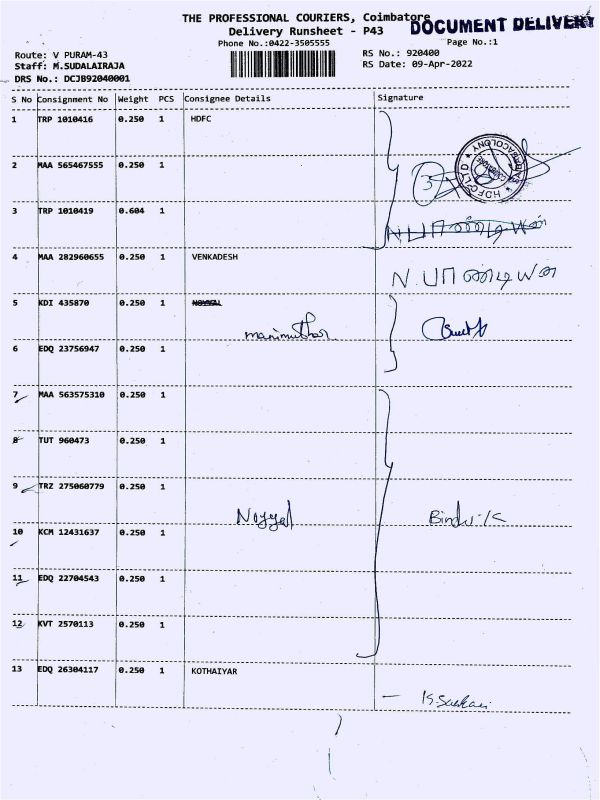 THE PROFESSIONAL COURIERS, Coimbatore
DOCUMENT DELIVERY
Delivery Runsheet - P43
Phone No.:0422-3505555
Page No.:1
Route: V PURAM-43
RS No.: 920400
Staff: M.SUDALAIRAJA
RS Date: 09-Apr-2022
DRS No.: DCJB92040001
S No Consignment No Weight PCS Consignee Details Signature
1 TRP 1010416 0.250 1 HDFC
2 MAA 565467555 0.250 1
3
3 TRP 1010419 0.604 1
N.பாண்டியன்
4 MAA 282960655 0.250 1 VENKADESH
N.பாண்டியன்
5 KDI 435870 0.250 1 NOYYAL
manimuthu
6 EDQ 23756947 0.250 1
7 MAA 563575310 0.250 1
8 TUT 960473 0.250 1
9 TRZ 275060779 0.250 1
Noyyal Bindu.K
10 KCM 12431637 0.250 1
11 EDQ 22704543 0.250 1
12 KVT 2570113 0.250 1
13 EDQ 26304117 0.250 1 KOTHAIYAR